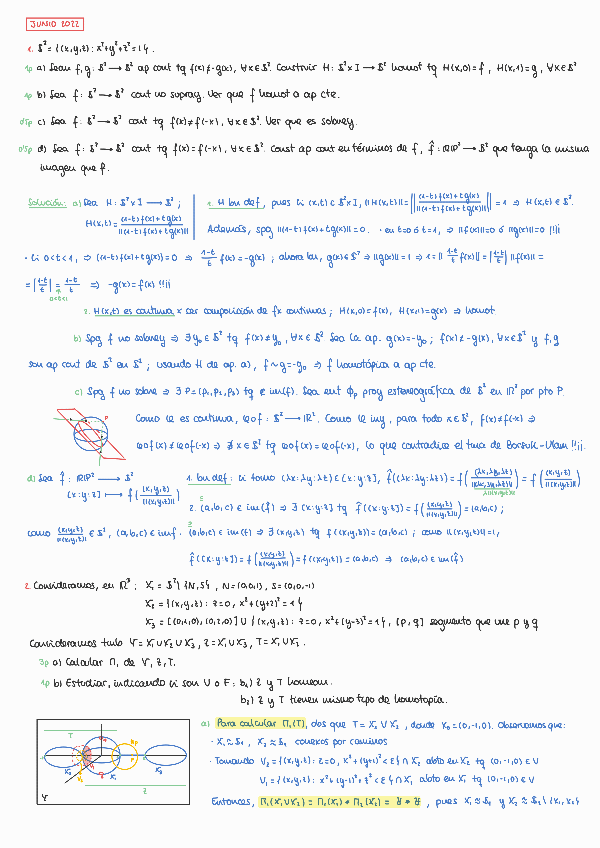 JUNIO 2022
1. S² = {(x,y,z) : x²+y²+z²=1}.
1p a) Sean f,g: S² → S² ap cont tq f(x)≠-g(x), ∀x∈S². Construir H: S²×I → S² homot tq H(x,0)=f, H(x,1)=g, ∀x∈S²
1p b) Sea f: S² → S² cont no supray. Ver que f homot a ap cte.
0'5p c) Sea f: S² → S² cont tq f(x)≠f(-x), ∀x∈S². Ver que es sobrey.
0'5p d) Sea f: S² → S² cont tq f(x)=f(-x), ∀x∈S². Const ap cont en términos de f, f̂: RP² → S² que tenga la misma
imagen que f.
Solución: a) Sea H: S²×I → S² ;
H(x,t) = ((1-t)f(x)+tg(x))/||(1-t)f(x)+tg(x)||
1. H bn def, pues si (x,t)∈S²×I, ||H(x,t)|| = ||((1-t)f(x)+tg(x))/||(1-t)f(x)+tg(x)|| || = 1 ⇒ H(x,t)∈S².
Además, spg ||(1-t)f(x)+tg(x)||=0. · en t=0 ó t=1, ⇒ ||f(x)||=0 ó ||g(x)||=0 !!¡¡
· Si 0<t<1, ⇒ (1-t)f(x)+tg(x)=0 ⇒ (1-t)/t f(x)=-g(x) ; ahora bn, g(x)∈S² ⇒ ||g(x)||=1 ⇒ 1=||(1-t)/t f(x)|| = |(1-t)/t| ||f(x)|| =
= |(1-t)/t| = (1-t)/t ⇒ -g(x)=f(x) !!¡¡
0<t<1
2. H(x,t) es continua x ser composición de fx continuas ; H(x,0)=f(x), H(x,1)=g(x) ⇒ homot
b) Spg f no sobrey ⇒ ∃y₀∈S² tq f(x)≠y₀, ∀x∈S² Sea la ap. g(x)=-y₀ ; f(x)≠-g(x), ∀x∈S² y f,g
son ap cont de S² en S² ; usando H de ap. a), f∼g=-y₀ ⇒ f homotópica a ap cte.
c) Spg f no sobre ⇒ ∃P=(p₁,p₂,p₃) tq ∉ im(f). Sea ent φp proy estereográfica de S² en R² por pto P.
P
Como φ es continua, φ∘f : S² → R². Como φ iny, para todo x∈S², f(x)≠f(-x) ⇒
φ∘f(x)≠φ∘f(-x) ⇒ ∄x∈S² tq φ∘f(x)=φ∘f(-x), lo que contradice el tma de Borsuk-Ulam !!¡¡.
d) Sea f̂: RP² → S²
[x:y:z] ↦ f((x,y,z)/||(x,y,z)||)
1. bn def : si tomo (λx:λy:λz)∈[x:y:z], f̂((λx:λy:λz)) = f((λx,λy,λz)/||(λx,λy,λz)||) = f((x,y,z)/||(x,y,z)||)
2. (a,b,c)∈im(f̂) ⇒ ∃[x:y:z] tq f̂([x:y:z]) = f((x,y,z)/||(x,y,z)||) = (a,b,c) ;
como (x,y,z)/||(x,y,z)|| ∈ S², (a,b,c)∈imf. (a,b,c)∈im(f) ⇒ ∃(x,y,z) tq f((x,y,z))=(a,b,c) ; como ||(x,y,z)||=1,
f̂([x:y:z]) = f((x,y,z)/||(x,y,z)||) = f((x,y,z))=(a,b,c) ⇒ (a,b,c)∈im(f̂)
2. Consideramos, en R³ ; X₁ = S²\{N,S}, N=(0,0,1), S=(0,0,-1)
X₂ = {(x,y,z) : z=0, x²+(y+2)²=1}
X₃ = [(0,1,0),(0,2,0)] ∪ {(x,y,z) : z=0, x²+(y-3)²=1}, [p,q] segmento que une p y q
Consideramos tmb Y=X₁∪X₂∪X₃, Z=X₁∪X₃, T=X₁∪X₂.
3p a) Calcular Π₁ de Y, Z, T.
1p b) Estudiar, indicando si son V o F: b₁) Z y T homeom.
b₂) Z y T tienen mismo tipo de homotopía.
T
X₂
X₁
X₃
Z
Y
a) Para calcular Π₁(T), dos que T=X₁∪X₂, donde x₀=(0,-1,0). Observamos que:
· X₁≈S₁, X₂≈S₁ conexos por caminos
· Tomando V₂={(x,y,z) : z=0, x²+(y+1)²<ε}∩X₂ abto en X₂ tq (0,-1,0)∈V
V₁={(x,y,z) : x²+(y+1)²+z²<ε}∩X₁ abto en X₁ tq (0,-1,0)∈V
Entonces, Π₁(X₁∪X₂) = Π₁(X₁) * Π₁(X₂) = Z * Z, pues X₁≈S₁ y X₂≈S₁